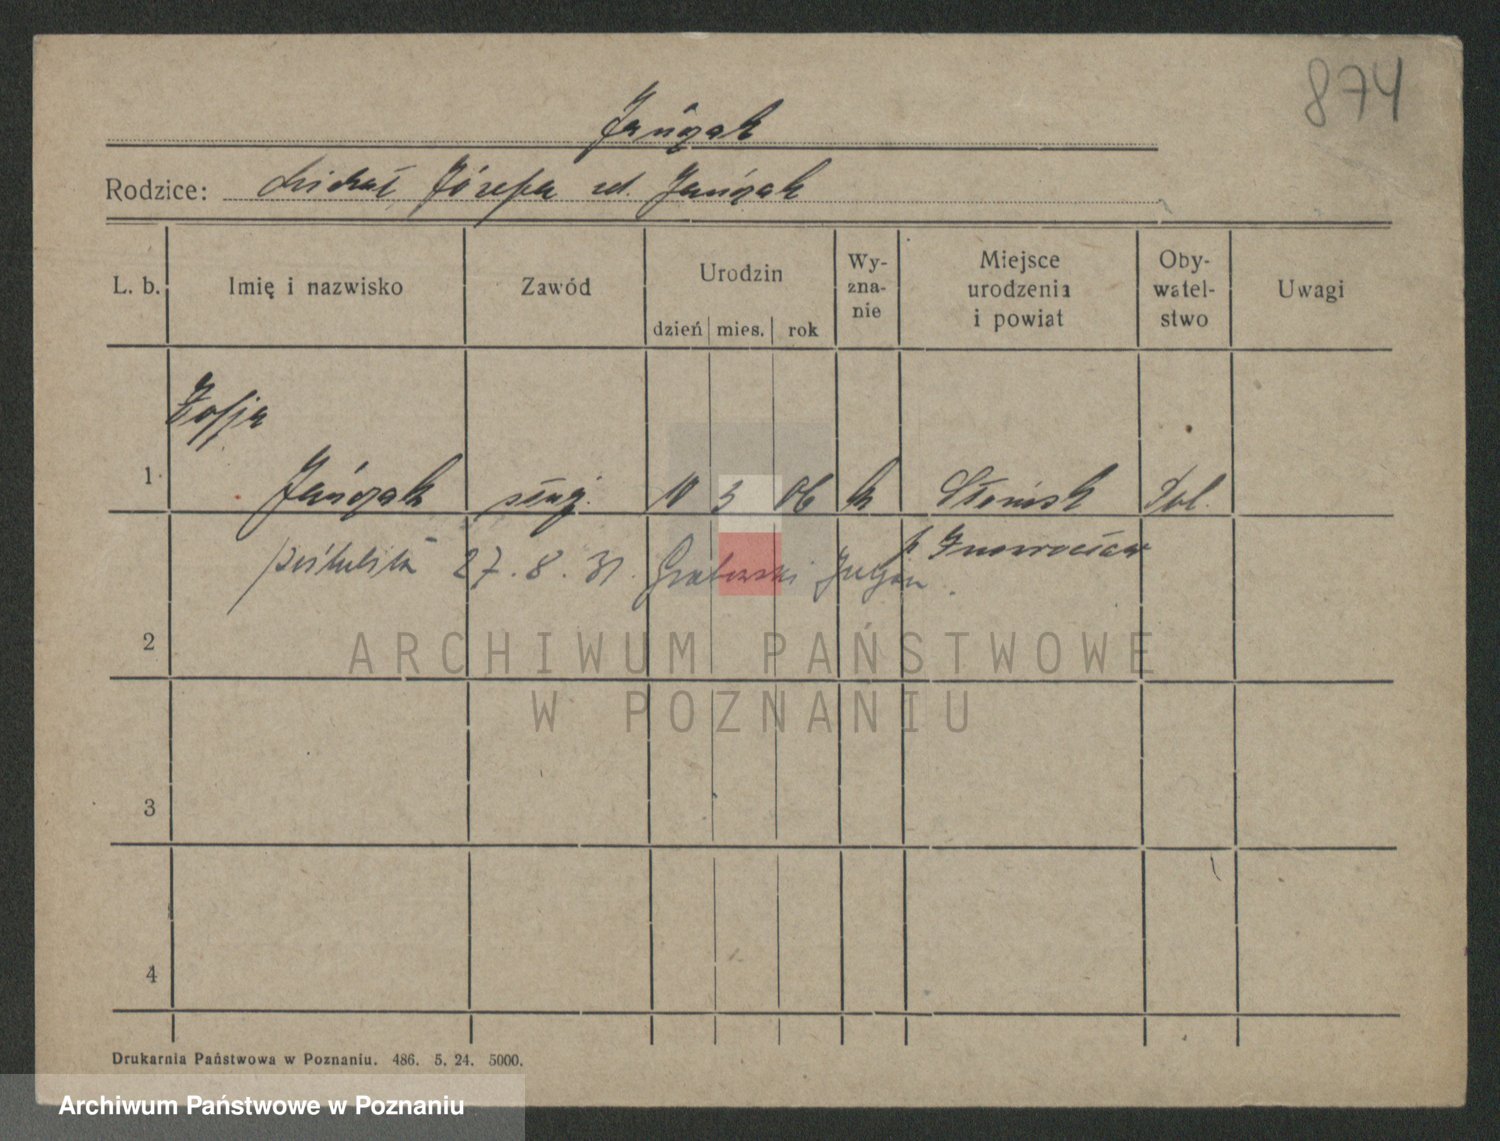 874
Jańczak
Rodzice: Michał, Józefa zd. Jańczak
L. b. Imię i nazwisko Zawód Urodzin dzień mies. rok Wy-zna-nie Miejsce urodzenia i powiat Oby-watel-stwo Uwagi
Zofja
1 Jańczak służ. 10 3 06 k Słońsk Pol.
p Inowrocław
poślubiła 27. 8. 31. Grabowski Juljan.
2
ARCHIWUM PAŃSTWOWE
W POZNANIU
3
4
Drukarnia Państwowa w Poznaniu. 486. 5. 24. 5000.
Archiwum Państwowe w Poznaniu